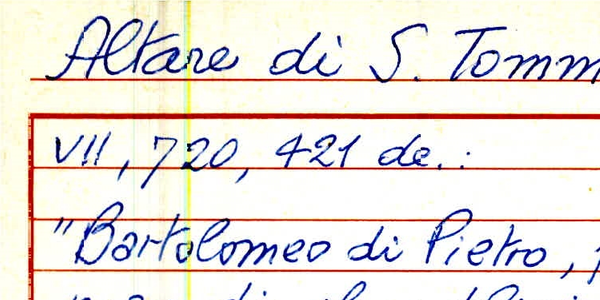 Altare di S. Tomm
VII, 720, 421 de.:
"Bartolomeo di Pietro,